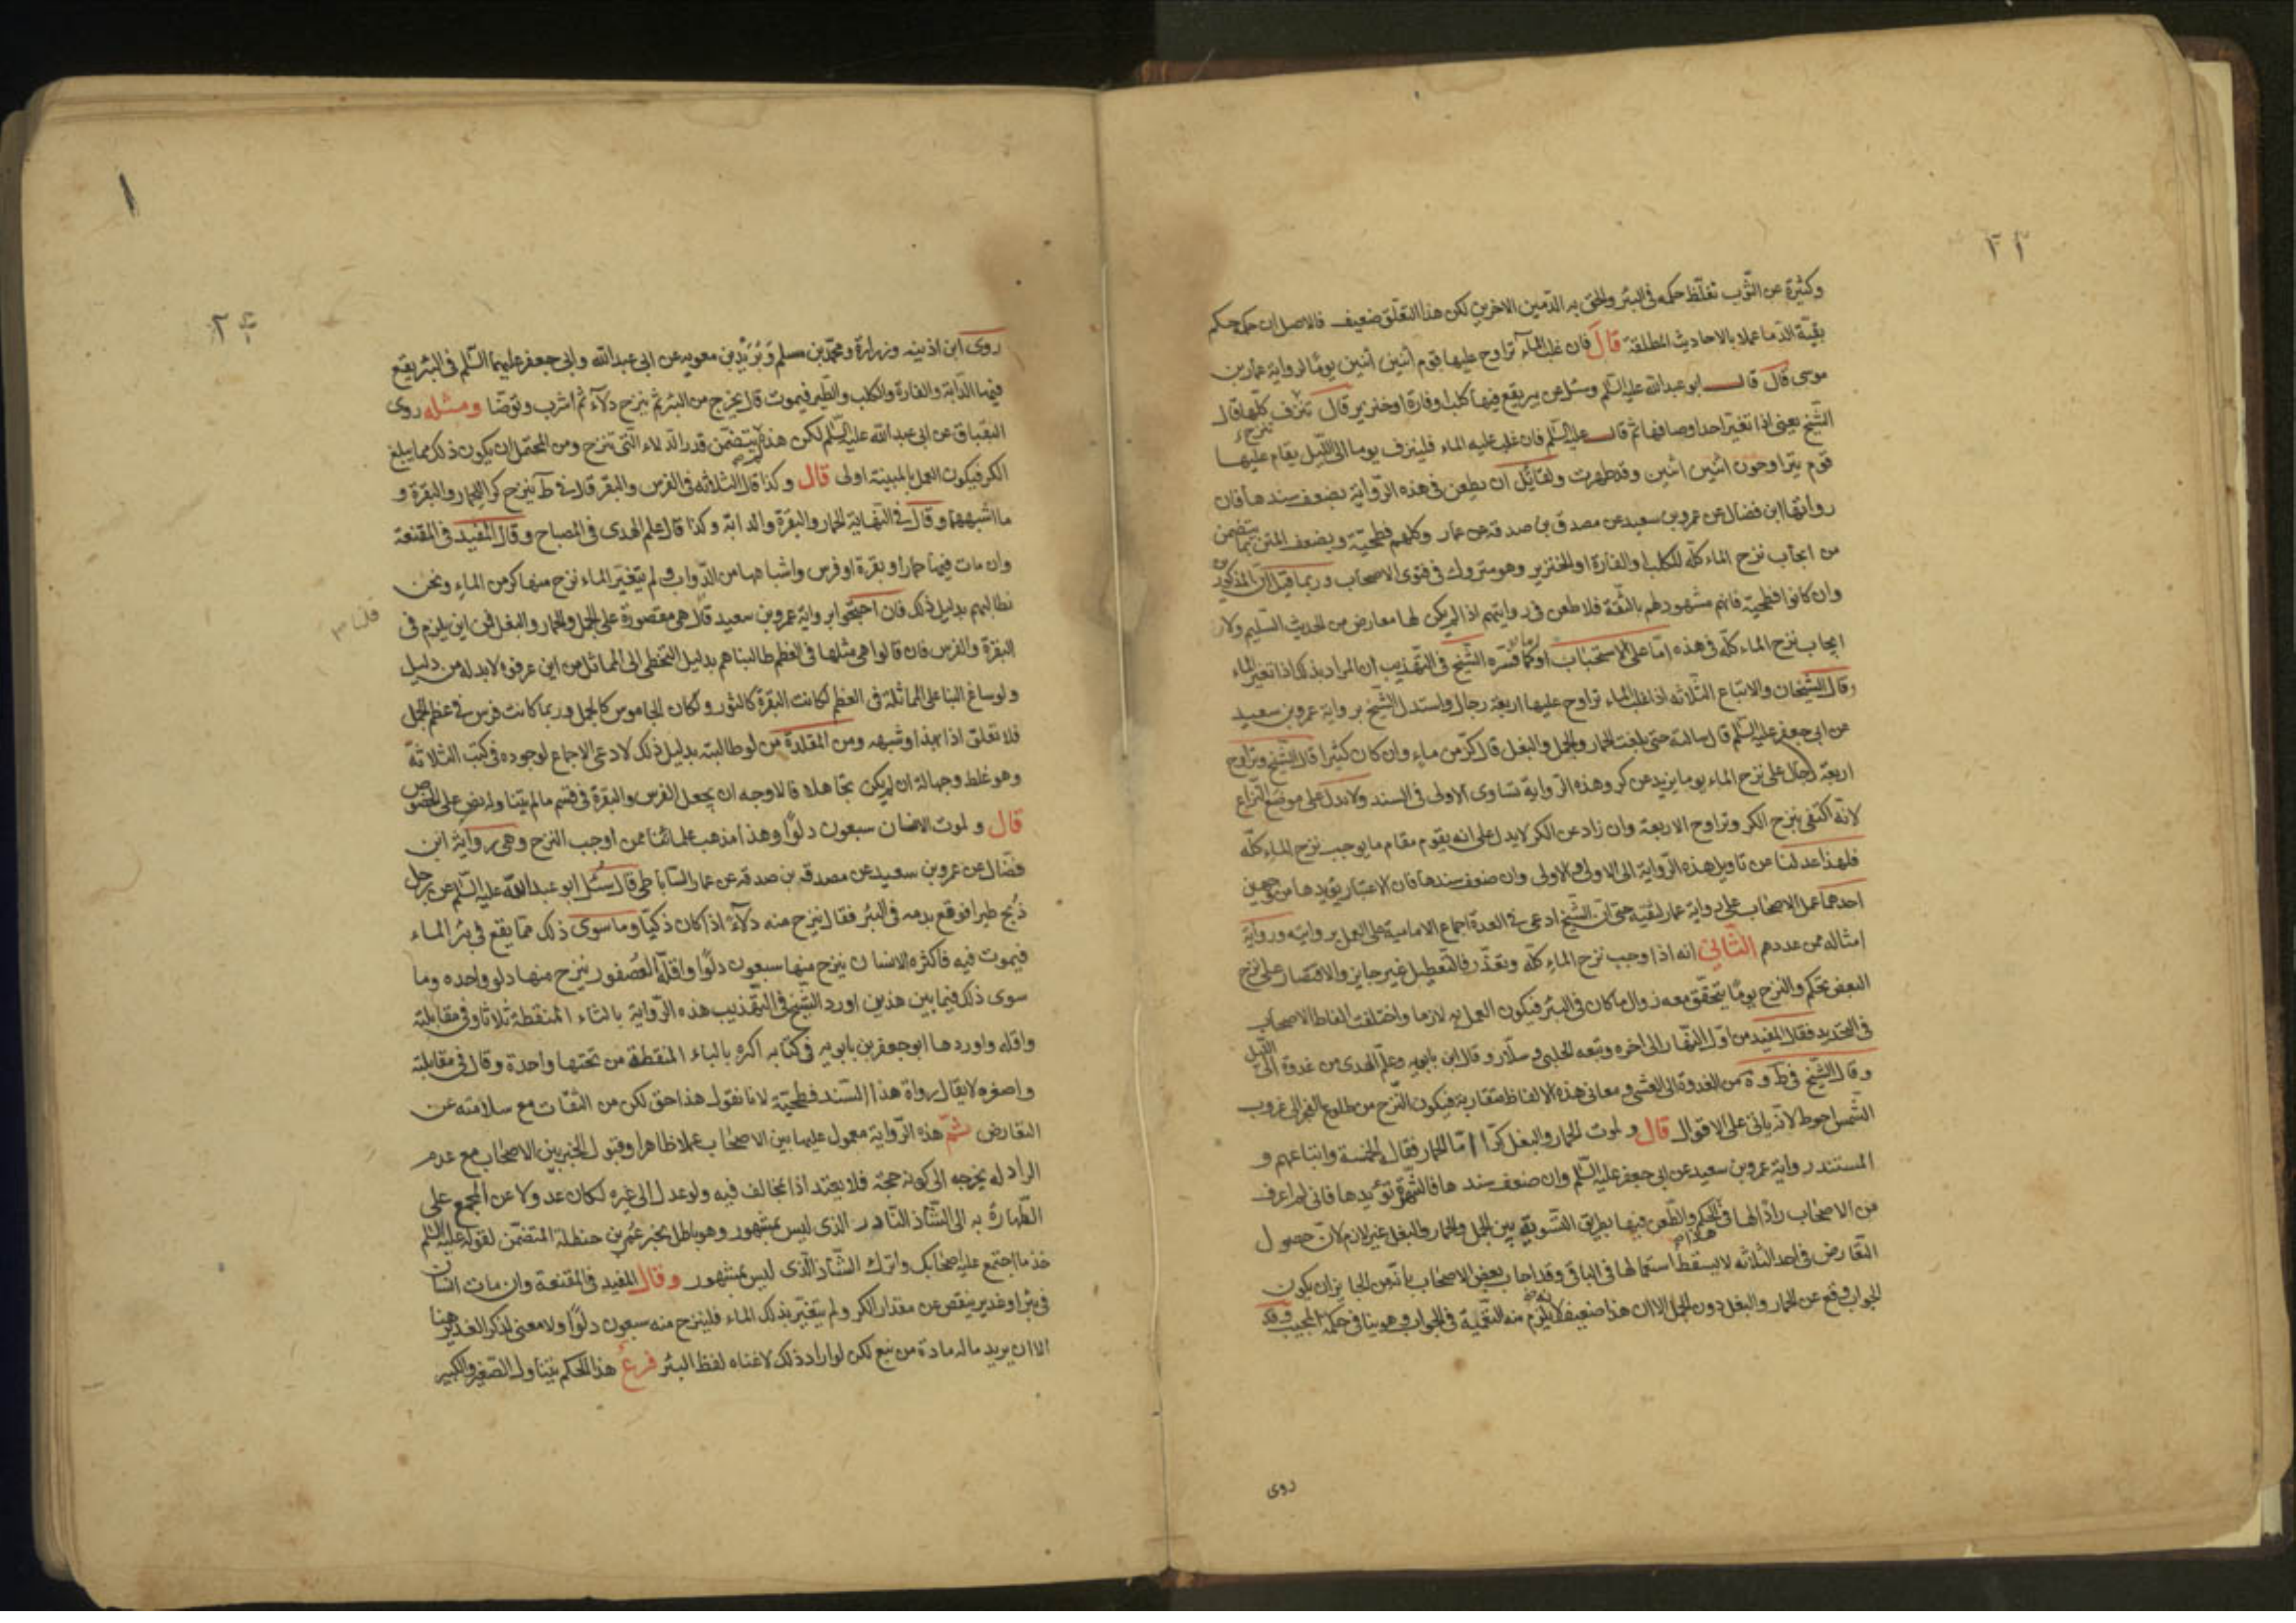 ٢١
وكثيرة عن الثوب تغلّظ حكمه فى البئر والحق به الدّمين الاخرين لكن هذا التعلّق ضعيف فالاصل ان حكمه حكم
بقيّة الدما عملا بالاحاديث المطلقة قال فان غلب الماء تراوح عليها قوم اثنين اثنين يومًا لرواية عمار بن
موسى قال قال ابو عبدالله عليه السّلم وسئل عن بير يقع فيها كلب او فارة او خنزير قال تنزف كلّها قال
الشّيخ يعنى اذا تغيّر احد اوصافها ثم قال عليه السّلم فان غلب عليه الماء فلينزف يوما الى اللّيل يقام عليها
قوم يتراوحون اثنين اثنين وقد طهرت ولقائل ان يطعن فى هذه الرّواية بضعف سندها فان
رواتها ابن فضال عن عمرو بن سعيد عن مصدق بن صدقه عن عمار وكلهم فطحيّة ويضعف المتن بما يتضمن
من ايجاب نزح الماء كلّه للكلب او الفارة او الخنزير وهو متروك فى فتوى الاصحاب وربما قيل ان المذكورين
وان كانوا فطحيّة فانهم مشهود لهم بالثّقة فلا طعن فى روايتهم اذا لم يكن لها معارض من الحديث السّليم ولان
ايجاب نزح الماء كلّه فى هذه امّا على الاستحباب او كما فسّره الشّيخ فى التّهذيب ان المراد بذلك اذا تغيّر الماء
وقال الشيخان والاتباع الثّلاثه اذا غلب الماء تراوح عليها اربعة رجال واستدل الشّيخ برواية عمرو بن سعيد
عن ابى جعفر عليه السّلم قال سالته حتى بلغت الحمار والجمل والبغل قال كرّ من ماء وان كان كثيرا قال الشّيخ وتراوح
اربعة رجال على نزح الماء يوما يزيد عن كر وهذه الرّواية تساوى الاولى فى السند ولا تدل على موضع النّزاع
لانّه اكتفى بنزح الكر وتراوح الاربعة وان زاد عن الكر لا يدل على انه يقوم مقام ما يوجب نزح الماء كلّه
فلهذا عدلنا عن تاويل هذه الرّواية الى الاولى والاولى وان ضعف سندها فان الاعتبار يؤيدها من جهتين
احدهما عمل الاصحاب على رواية عمار لثقته حتى ان الشّيخ ادعى فى العدة اجماع الامامية على العمل بروايته ورواية
امثاله ممن عددهم الثّانى انه اذا وجب نزح الماء كلّه وتعذّر فالتّعطيل غير جايز والاقتصار على نزح
البعض تحكّم والنزح يومًا يتحقّق معه زوال ما كان فى البئر فيكون العمل به لازما واختلفت الفاظ الاصحاب
فى التحديد فقال المفيد من اوّل النّهار الى اخره وتبعه الحلبى وسلّار وقال ابن بابويه وعلم الهدى من غدوة الى اللّيل
وقال الشّيخ فى ط و ة من الغدوة الى العشى ومعانى هذه الالفاظ متقاربة فيكون النّزح من طلوع الفجر الى غروب
الشّمس احوط لانّه ياتى على الاقوال قال و لموت الحمار والبغل كرّ امّا الحمار فقال الخمسة واتباعهم و
المستند رواية عمرو بن سعيد عن ابى جعفر عليه السّلم وان ضعف سندها فالشّهرة تؤيدها فانى لم اعرف
من الاصحاب رادّا لها فى الحكم والطّعن فيها بطريق التّسوية بين الجمل والحمار والبغل غير لازم لانّ حصول
التّعارض فى احد الثلاثه لا يسقط استعمالها فى الباقى وقد اجاب بعض الاصحاب بانّه من الجايز ان يكون
الجواب وقع عن الحمار والبغل دون الجمل الا ان هذا ضعيف لانّه يلزم منه التّعمية فى الجواب وهو ينافى حكمة المجيب وقد
روى
٢
روى ابن اذينه وزرارة ومحمّد بن مسلم وبُرَيْد بن معويه عن ابى عبدالله وابى جعفر عليهما السّلم فى البئر يقع
فيها الدّابة والفارة والكلب والطّير فيموت قال يخرج من البئر ثم ينزح دلاء ثم اشرب وتوضّا ومثله روى
البقباق عن ابى عبدالله عليه السّلم لكن هذه لم يتضمّن قدر الدلاء الّتى تنزح ومن المحتمل ان يكون ذلك مما يبلغ
الكر فيكون العمل بالمبينة اولى قال وكذا قال الثلاثه فى الفرس والبقر قال فى ط ينزح كر للحمار والبقرة و
ما اشبههما وقال فى النّهاية للحمار والبقرة والدابّة وكذا قال علم الهدى فى المصباح وقال المفيد فى المقنعة
وان مات فيها حمار او بقرة او فرس واشباهها من الدّواب ولم يتغيّر الماء نزح منها كر من الماء ونحن
نطالبهم بدليل ذلك فان احتجّوا برواية عمرو بن سعيد قلنا هى مقصورة على الجمل والحمار والبغل فمن اين يلزم فى
البقرة والفرس فان قالوا هى مثلها فى العظم طالبناهم بدليل التخطى الى المماثل من اين عرفوه لابد له من دليل
ولو ساغ البنا على المماثلة فى العظم لكانت البقرة كالثور ولكان الجاموس كالجمل وربما كانت فرس فى عظم الجمل
فلا تعلق اذا بهذا وشبهه ومن المقلدة من لو طالبته بدليل ذلك لادعى الاجماع لوجوده فى كتب الثلاثة
وهو غلط وجهالة ان لم يكن تجاهلا فالاوجه ان يجعل الفرس والبقرة فى قسم ما لم يتناوله نص على الخصوص
قال و لموت الانسان سبعون دلوًا وهذا مذهب علمائنا ممن اوجب النزح وهى رواية ابن
فضّال عن عمرو بن سعيد عن مصدقه بن صدقه عن عمار السّاباطى قال سئل ابو عبدالله عليه السّلم عن رجل
ذبح طيرا فوقع بدمه فى البئر فقال ينزح منه دلاء اذا كان ذكيّا وما سوى ذلك مما يقع فى بئر الماء
فيموت فيه فاكثره الانسان ينزح منها سبعون دلوًا واقلّه العُصفور ينزح منها دلو واحده وما
سوى ذلك فيما بين هذين اورد الشّيخ فى التّهذيب هذه الرّواية بالثاء المنقطة ثلاثا وفى مقابلته
واقله واوردها ابو جعفر بن بابويه فى كتابه اكبره بالباء المنقطة من تحتها واحدة وقال فى مقابلته
واصغره لا يقال رواة هذا السّند فطحيّة لانا نقول هذا حق لكن من الثقات مع سلامته عن
التعارض ثمّ هذه الرّواية معمول عليها بين الاصحاب عملا ظاهرا وقبول الخبر بين الاصحاب مع عدم
الراد له يخرجه الى كونه حجّة فلا يعتد اذا بمخالف فيه ولو عدل الى غيره لكان عدولا عن المجمع على
الطّهارة به الى الشّاذ النّادر الذى ليس بمشهور وهو باطل بخبر عُمر بن حنظلة المتضمّن لقوله عليه السّلم
خذ ما اجتمع عليه اصحابك واترك الشّاذ الّذى ليس بمشهور وقال المفيد فى المقنعة وان مات انسان
فى بئر او غدير ينقص عن مقدار الكر ولم يتغيّر بذلك الماء فلينزح منه سبعون دلوًا ولا معنى لذكر الغدير هنا
الا ان يريد ماله مادة من نبع لكن لو اراد ذلك لاغناه لفظ البئر فرع هذا الحكم يتناول الصّغير والكبير